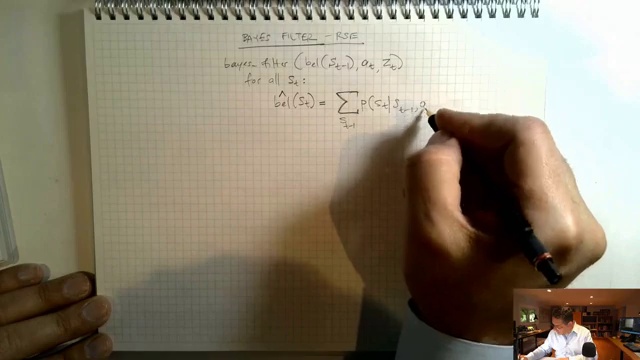 BAYES FILTER - RSE
bayes filter (bel(St-1), at, Zt)
for all St:
b̂el(St) = ∑ p(St | St-1, a
St-1